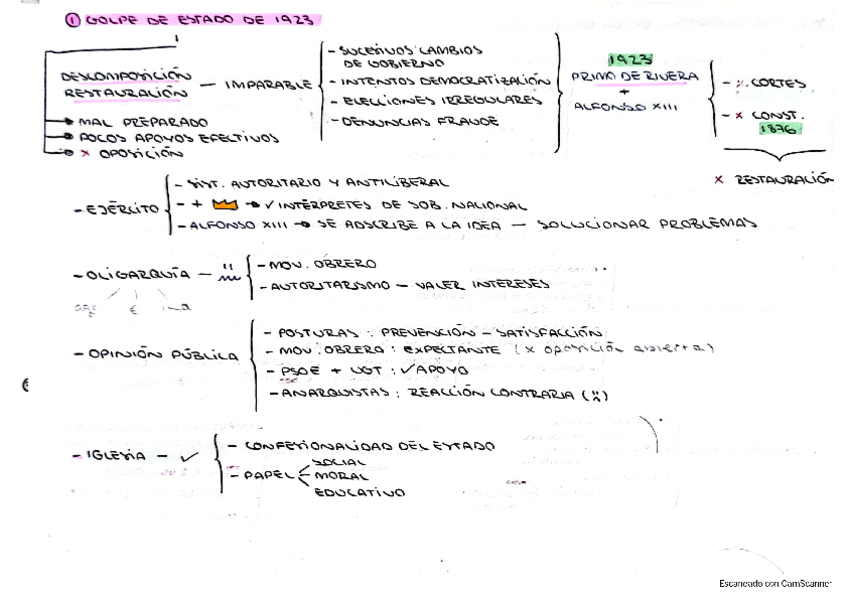 ① GOLPE DE ESTADO DE 1923
DESCOMPOSICIÓN
RESTAURACIÓN
— IMPARABLE
MAL PREPARADO
POCOS APOYOS EFECTIVOS
× OPOSICIÓN
- SUCESIVOS CAMBIOS
DE GOBIERNO
- INTENTOS DEMOCRATIZACIÓN
- ELECCIONES IRREGULARES
- DENUNCIAS FRAUDE
1923
PRIMO DE RIVERA
+
ALFONSO XIII
- × CORTES
- × CONST.
1876
× RESTAURACIÓN
- EJÉRCITO
- SIST. AUTORITARIO Y ANTILIBERAL
- + 👑 → ✓ INTÉRPRETES DE SOB. NACIONAL
- ALFONSO XIII → SE ADSCRIBE A LA IDEA — SOLUCIONAR PROBLEMAS
- OLIGARQUÍA —
- MOV. OBRERO
- AUTORITARISMO — VALER INTERESES
€
- OPINIÓN PÚBLICA
- POSTURAS : PREVENCIÓN - SATISFACCIÓN
- MOV. OBRERO : EXPECTANTE (× oposición abierta)
- PSOE + UGT : ✓ APOYO
- ANARQUISTAS : REACCIÓN CONTRARIA (:()
- IGLESIA — ✓
- CONFESIONALIDAD DEL ESTADO
- PAPEL
SOCIAL
MORAL
EDUCATIVO
Escaneado con CamScanner